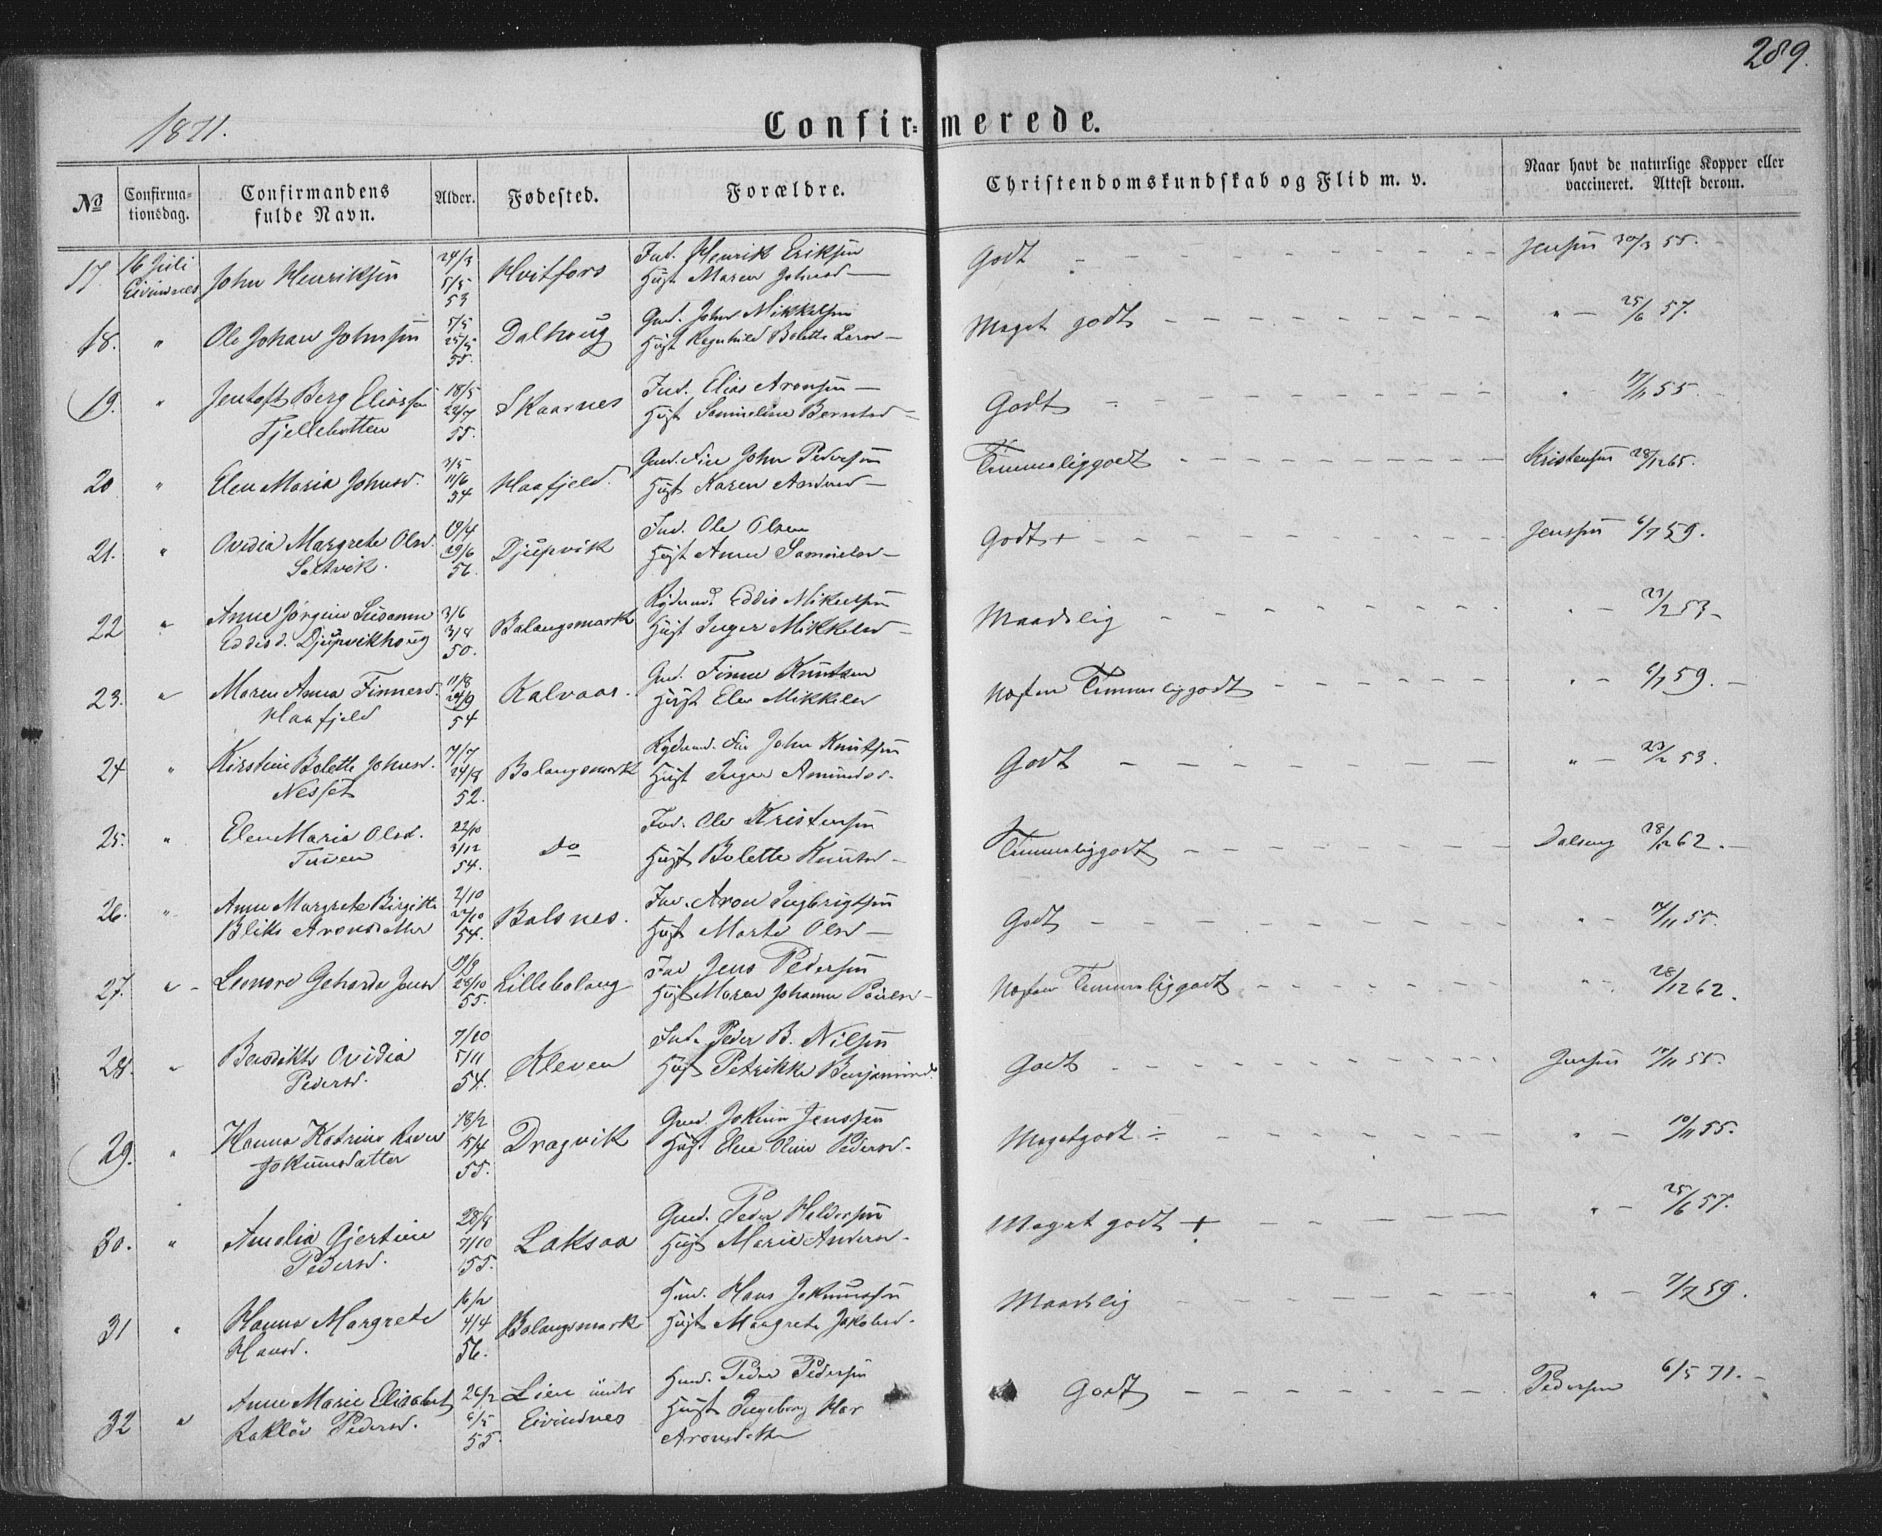 289.
1871.
Confirmerede.
No
Confirmationsdag.
Confirmandens fulde Navn.
Alder.
Fødested.
Forældre.
Christendomskundskab og Flid m. v.
Naar havt de naturlige Kopper eller vaccineret. Attest derom.
17. 16 Juli Eivindnes John Henriksen 5/5 53 Hvitfors Ind. Henrik Eriksen Hust Maren Johnsd Godt Jensen 30/3 55.
18. " Ole Johan Johnsen 5/5 25/5 55. Dalhoug Gmd. John Mikkelsen Hust Regnhild Bolette Larsd Meget godt " 25/6 57.
19. " Jentoft Berg Eliassen Fjellebotten 18/5 22/7 55. Skaarnes Ind. Elias Aronsen Hust Samueline Berntsd Godt " 55
20 " Elen Maria Johnsd. 3/5 11/6 54 Haafjeld. Gmd. Fin John Pedersen Hust Karen Temmeliggodt Kristensen 28/12 65.
21. " Ovidia Margrete Olsd. Saltvik. 19/4 29/6 56. Djupvik Ind. Ole Olsen Hust Anne Samuelsd Godt + Jensen 6/7 59.
22 " Anne Jørgine Susanne Eddisd. Djupvikhoug 3/6 3/8 50. Balangsmark Eddis Mikkelsen Hust Inger Mikkelsd Maadelig " 53
23. " Maren Anna Finnesd. Haafjeld 11/8 24/9 54 Kalvaas. Gmd. Finne Knutsen Hust Elen Mikkelsd Næsten Temmeliggodt " 6/7 59.
24 " Kirstine Bolette Johnsd. Nesset 7/7 24/8 52. Balangsmark Fin John Knutsen Hust Inger Amundsd. Godt " 23/2 53.
25. " Elen Maria Olsd. Tuven 22/10 3/12 54. do Ind. Ole Kristensen Hust Bolette Knutsd Temmeliggodt 28/12 62.
26. " Anne Margrete Birgitte Bliks Aronsdatter 2/10 22/10 54. Balsnes. Ind. Aron Ingbrigtsen Hust Marte Olsd Godt " 55.
27. " Leonore Geharda Jensd 28/10 55. Lillebalang Ind Jens Pedersen Hust Maren Johanne Poulsd Næsten Temmeliggodt " 28/12 62.
28. " Benedikte Ovidia Pedersd. 7/10 5/11 54. Kleven Ind. Peder B. Nilsen Hust Petrikke Benjamind. Godt Jensen 55.
29. " Hanna Katrine Jokumsdatter 18/2 15/4 55. Dragvik Gmd Jokum Jenssen Hust Elen Oline Pedersd. Meget godt ÷ " 55.
30. " Amalia Gjertine Pedersd. 28/8 7/10 55. Laksaa Gmd. Peder Haldorsen Hust Marie Andersd. Meget godt + " 25/6 57.
31 " Hanna Margrete Hansd. 16/2 4/4 56. Balangsmark Hans Jokumsen Hust Margrete Jakobsd. Maadelig " 7/7 59.
32 " Anne Marie Elisabet Pedersd. 26/2 6/5 55. Lien under Eivindnes Peder Pedersen Hust Ingeborg Aronsdatter Godt Pedersen 6/5 71.